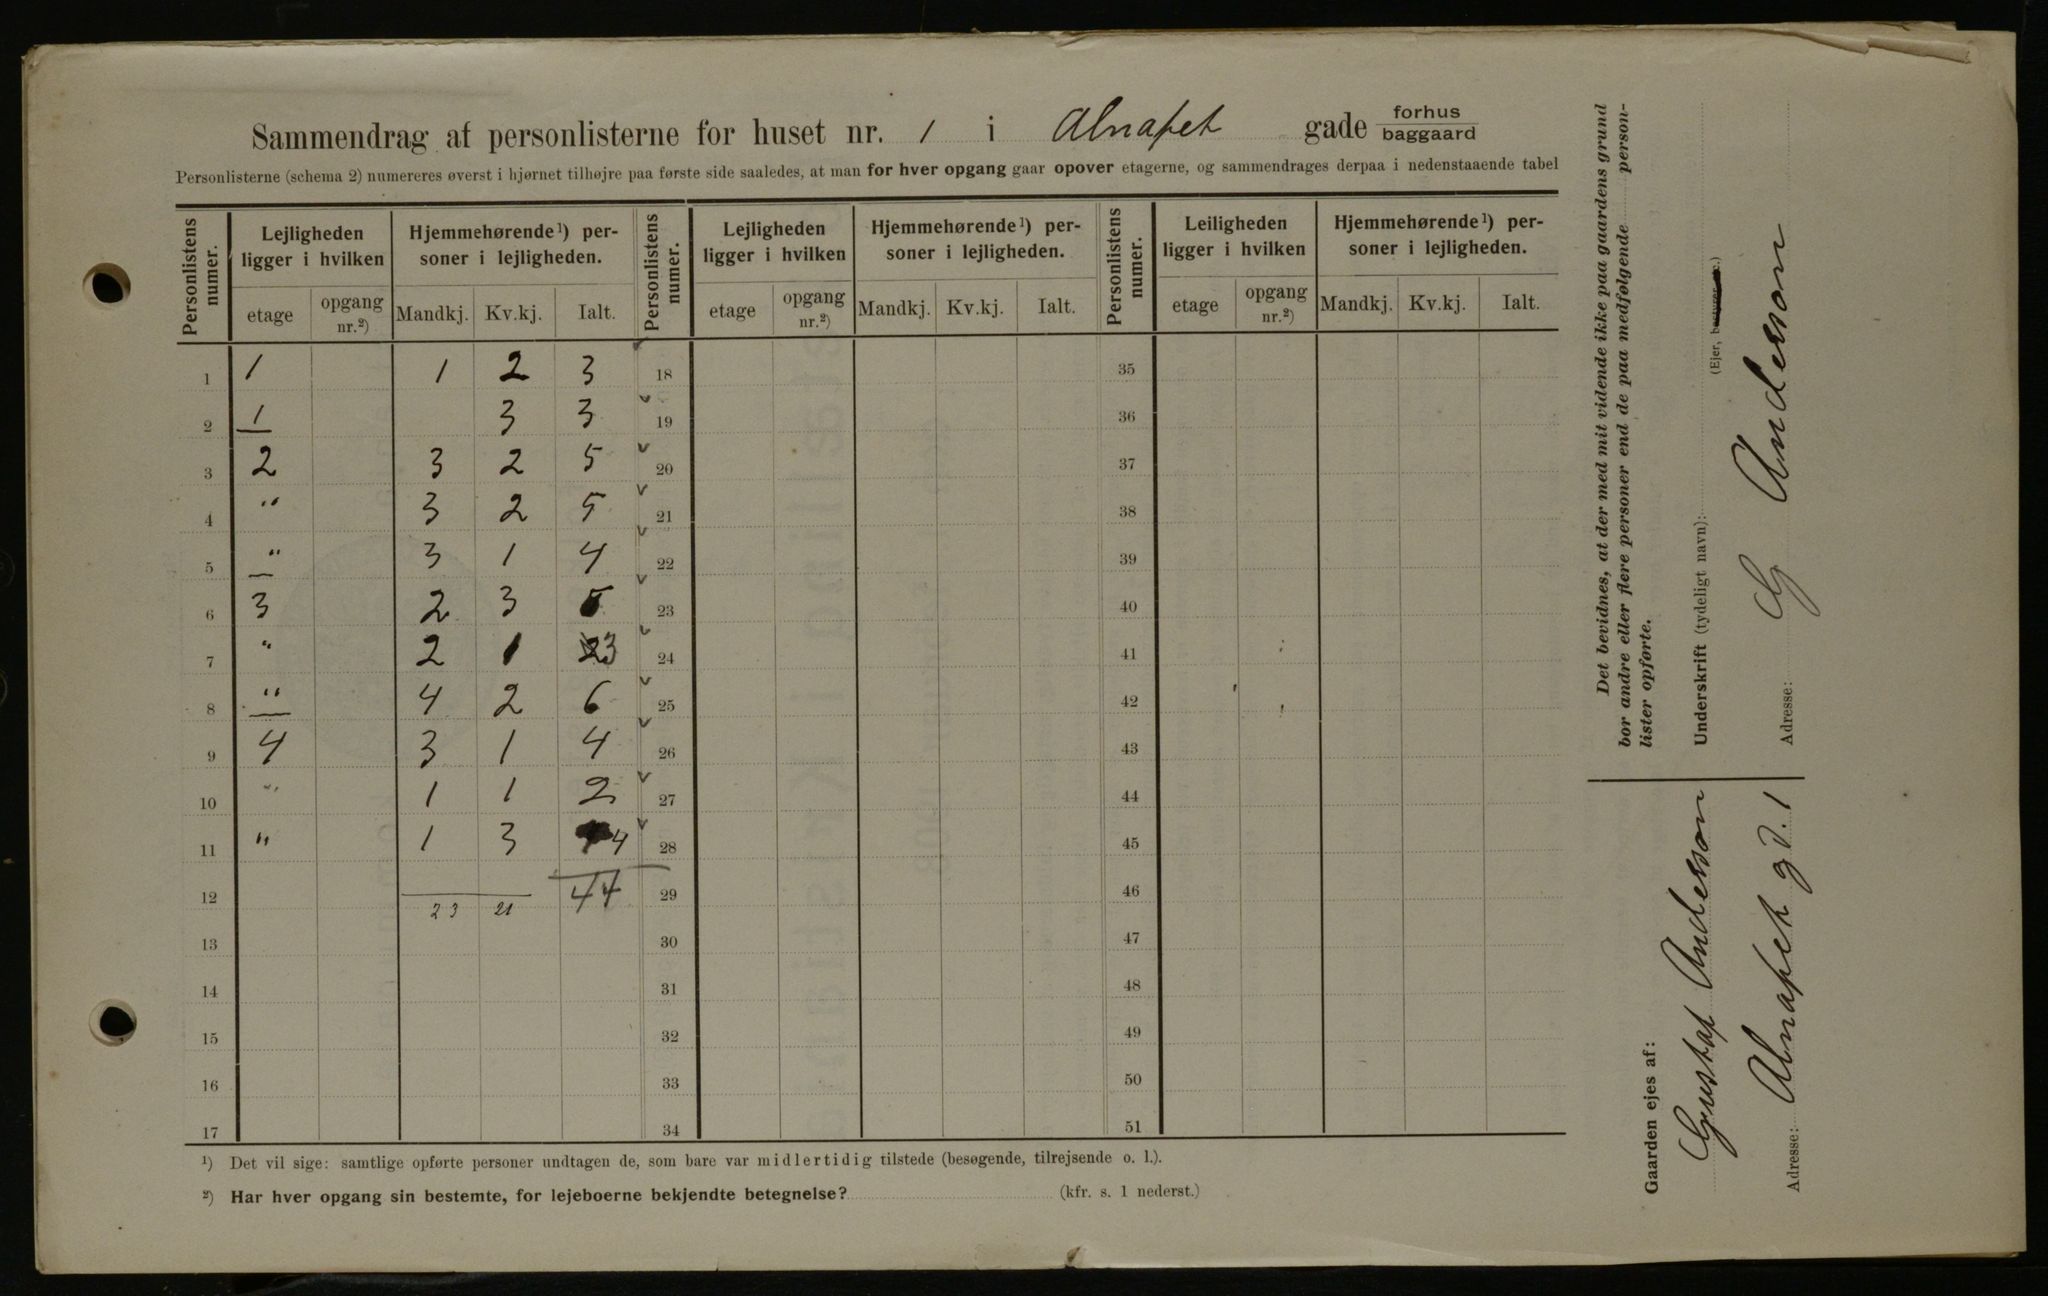 Sammendrag af personlisterne for huset nr. 1 i Alnafet gade forhus baggaard
Personlisterne (schema 2) numereres øverst i hjørnet tilhøjre paa første side saaledes, at man for hver opgang gaar opover etagerne, og sammendrages derpaa i nedenstaaende tabel
Personlistens numer. Lejligheden ligger i hvilken Hjemmehørende¹) personer i lejligheden. Personlistens numer. Lejligheden ligger i hvilken Hjemmehørende¹) personer i lejligheden. Personlistens numer. Leiligheden ligger i hvilken Hjemmehørende¹) personer i lejligheden.
etage opgang nr.²) Mandkj. Kv.kj. Ialt. etage opgang nr.²) Mandkj. Kv.kj. Ialt. etage opgang nr.²) Mandkj. Kv.kj. Ialt.
1 1 1 2 3 18 35
2 1 3 3 19 36
3 2 3 2 5 20 37
4 " 3 2 5 21 38
5 " 3 1 4 22 39
6 3 2 3 5 23 40
7 " 2 1 3 24 41
8 " 4 2 6 25 42
9 4 3 1 4 26 43
10 " 1 1 2 27 44
11 " 1 3 4 28 45
12 23 21 44 29 46
13 30 47
14 31 48
15 32 49
16 33 50
17 34 51
¹) Det vil sige: samtlige opførte personer undtagen de, som bare var midlertidig tilstede (besøgende, tilrejsende o. l.).
²) Har hver opgang sin bestemte, for lejeboerne bekjendte betegnelse? (kfr. s. 1 nederst.)
Det bevidnes, at der med mit vidende ikke paa gaardens grund
bor andre eller flere personer end de paa medfølgende person-
lister opførte.
Underskrift (tydeligt navn): G Anderson
(Ejer, bestyrer etc.)
Adresse:
Gaarden ejes af:
Gustaf Anderson
Adresse: Alnafet gd. 1